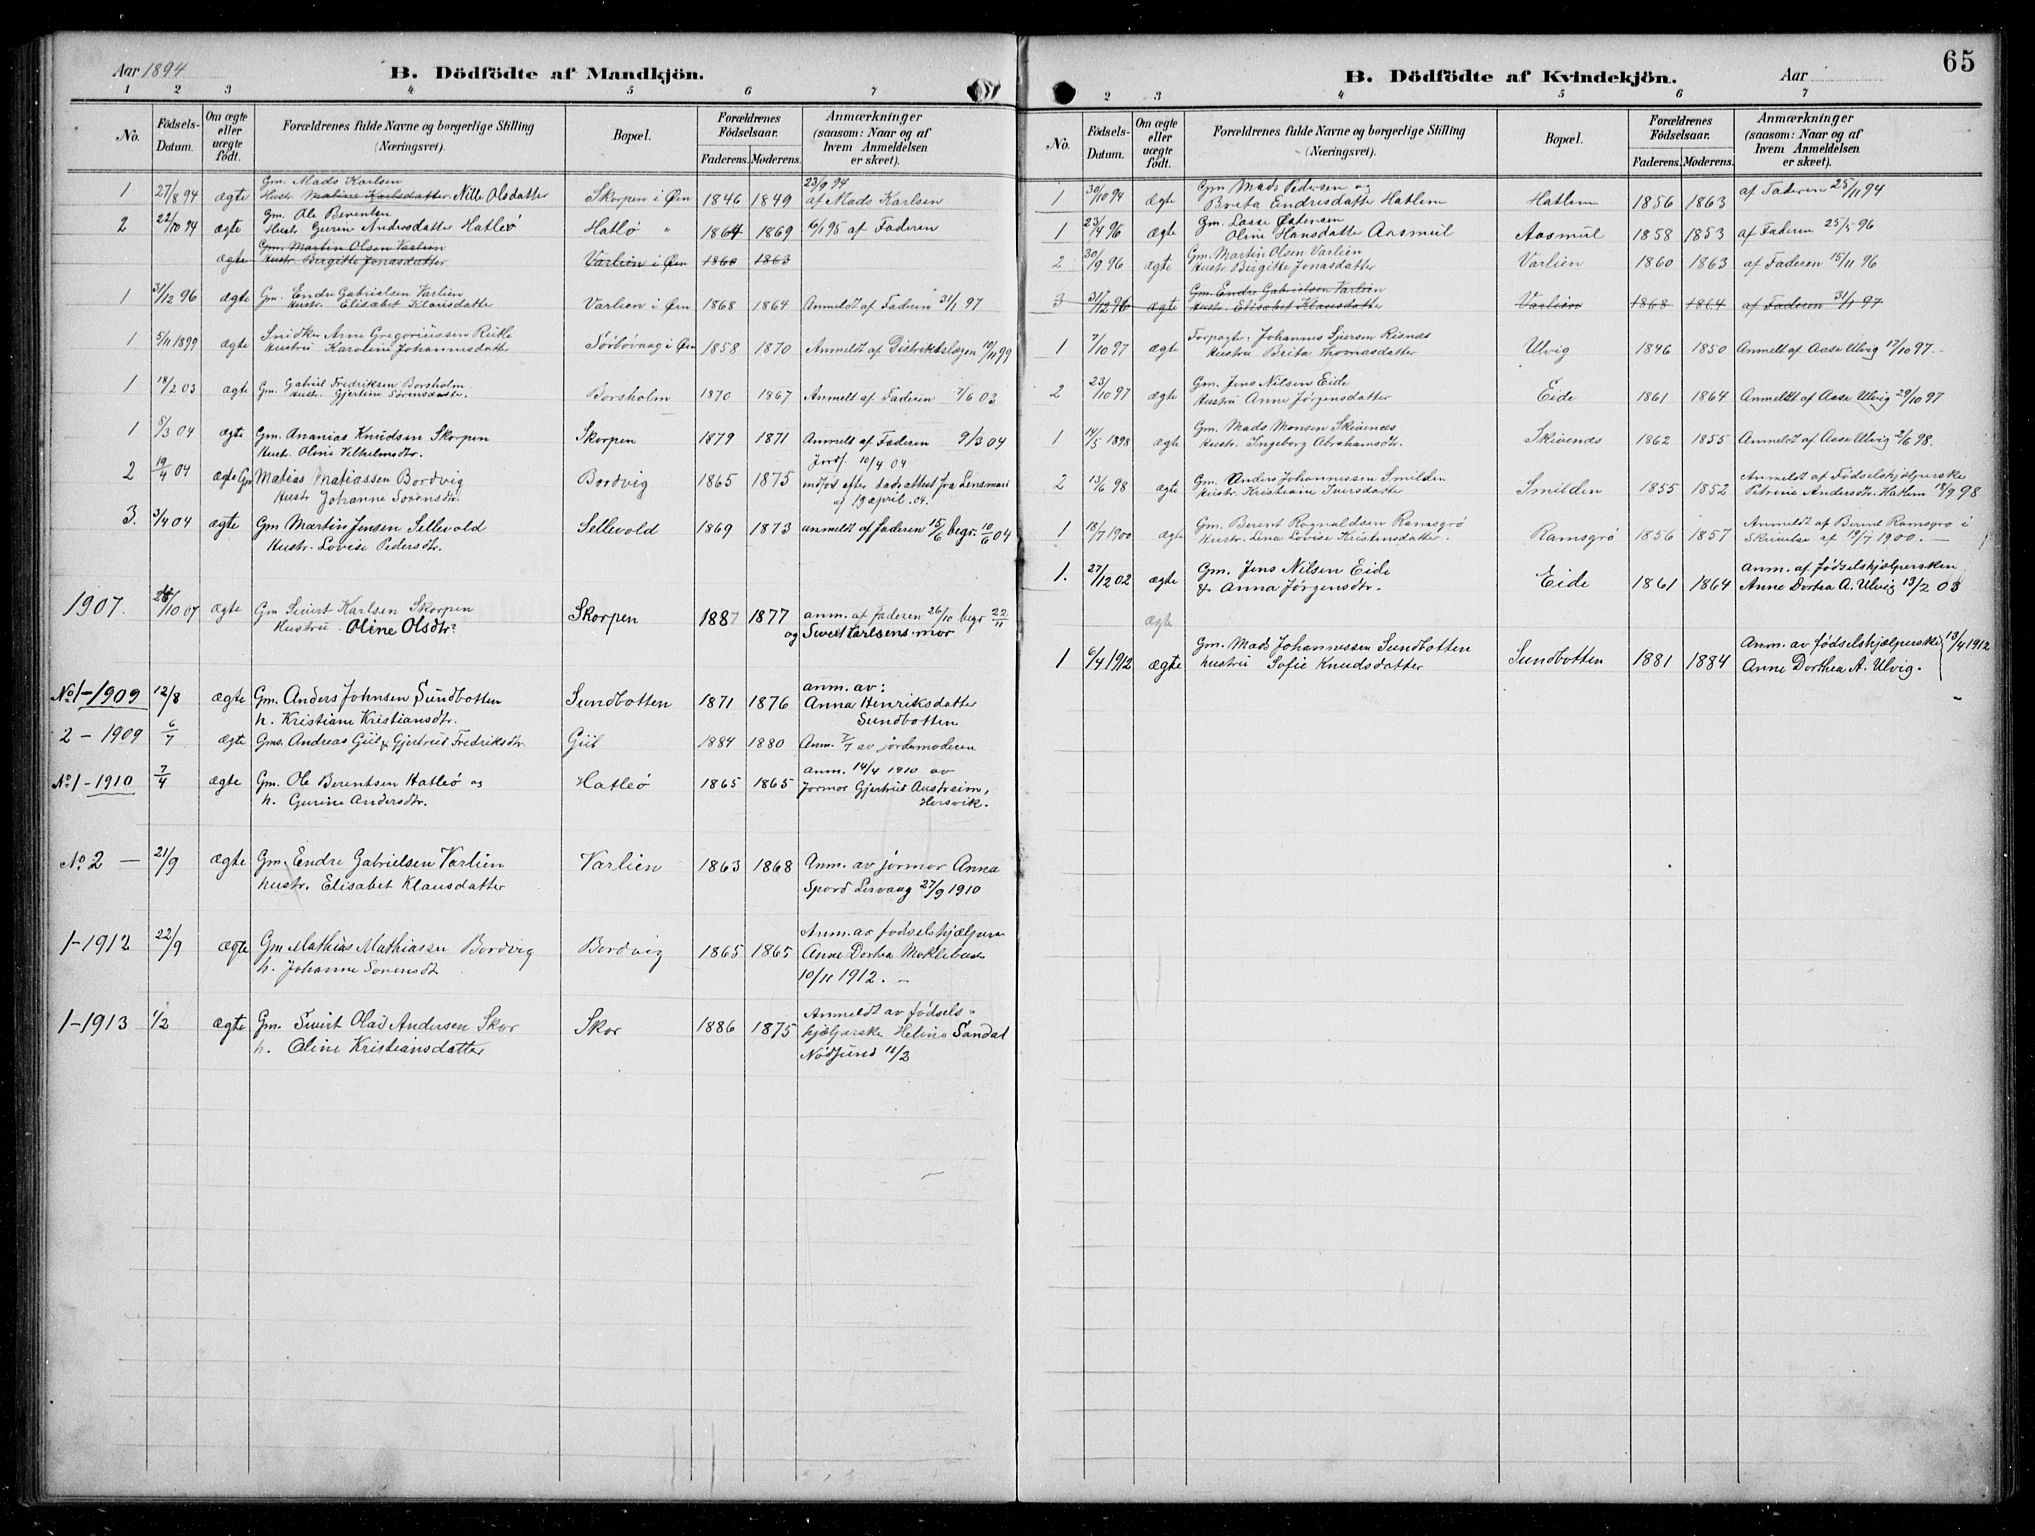 Aar 1894
B. Dödfödte af Mandkjön.
1 2 3 4 5 6 7
No. Födsels-Datum. Om ægte eller uægte födt. Forældrenes fulde Navne og borgerlige Stilling (Næringsvei). Bopæl. Forældrenes Födselsaar. Faderens. Moderens. Anmærkninger (saasom: Naar og af hvem Anmeldelsen er skeet).
1 27/8 94 ægte Gm. Mads Karlsen 23/9 94
Hustr. Maline Karlsdatter Nille Olsdatter Skorpen i Øen 1846 1849 af Mads Karlsen
2 22/10 94 ægte Gm. Ole Berentsen
Hustr. Gurine Andersdatter Hatleö Hatlø " 1864 1869 6/1 95 af Faderen
ægte Gm. Martin Olsen Varlien
Hustr. Birgitte Jonasdatter Varlien i Øen 1860 1863
1 31/12 96 ægte Gm. Endre Gabrielsen Varlien
Hustr. Elisabet Klausdatter Varlien i Øen 1868 1864 Anmeldt af Faderen 31/1 97
1 5/11 1899 ægte Snidker Arne Gregoriussen Rutle
Hustru Karoline Johannesdatter Sørbøvaag i Øen 1858 1870 Anmeldt af Distriktslægen 10/11 99
1 18/2 03 ægte Gm. Gabriel Fredriksen Borsholm
Hustr. Gjertine Sørensdatter. Borsholm 1870 1867 Anmelt af Faderen 7/6 03
1 8/3 04 ægte Gm. Ananias Knudsen Skorpen Skorpen 1879 1871 Anmelt af Faderen 9/3 04
Hustr. Oline Vilhelmsdtr. Jordf. 10/4 04
2 19/4 04 ægte Gm Matias Matiassen Bordvig Bordvig 1865 1875 indført efter dødsattest fra Lensmand
Hustr Johanne Sørensdtr. af 19 april. 04.
3. 3/4 04 ægte Gm Martin Jensen Sellevold Sellevold 1869 1873 anmeldt af faderen 15/6 begr. 10/6 04
Hustr. Lovise Pedersdtr.
1907. 26/10 07 ægte Gm Sivert Karlsen Skorpen Skorpen 1887 1877 anm. af faderen 26/10 begr 22/11
Hustru Oline Olsdtr. og Sivert Karlsens mor
No 1-1909 12/8 ægte Gm. Anders Johnsen Sundbotten Sundbotten 1871 1876 anm. av:
h. Kristiane Kristiansdtr. Anna Henriksdatter
Sundbotten
2 - 1909 6/7 ægte Gms. Andreas Giil & Gjertrud Fredriksdtr. Giil 1884 1880 Anm. 7/7 av jordemoderen
No 1-1910 7/4 ægte Gm. Ole Berentsen Hatleö og Hatleö 1865 1865 anm. 14/4 1910 av
h. Gurine Andersdtr. Jormor Gjertrud Austreim,
Hersvik.
No 2 — 21/9 ægte Gm. Endre Gabrielsen Varlien Varlien 1863 1868 Anm. av jormor Anna
hustr. Elisabet Klausdatter Spord Lervaag 27/9 1910
1-1912 22/9 ægte Gm Mathias Mathiassen Bordvig Bordvig 1865 1865 Anm. av fødselshjælper
h. Johanne Sorensdt Anne Dortea Moklebust
10/11 1912. —
1-1913 1/2 ægte Gm. Sivert Olai Andersen Skor Skor 1886 1875 Anmeldt av fødsels-
h. Oline Kristiansdatter hjælperske Heline Sandal
Nödsund 11/2
65
B. Dödfödte af Kvindekjön.
Aar
2 3 4 5 6 7
No. Födsels-Datum. Om ægte eller uægte födt. Forældrenes fulde Navne og borgerlige Stilling (Næringsvei). Bopæl. Forældrenes Födselsaar. Faderens. Moderens. Anmærkninger (saasom: Naar og af hvem Anmeldelsen er skeet).
1 30/10 94 ægte Gm Mads Pedersen og
Brita Endresdatter Hatlem Hatlem 1856 1863 af Faderen 25/11 94
1 23/4 96 ægte Gm. Lasse Østensen
Oline Hansdatter Aasmul Aasmul 1858 1853 af Faderen 25/5 96
2 30/9 96 ægte Gm. Martin Olsen Varlien
Hustr. Birgitte Jonasdatter Varlien 1860 1863 af Faderen 15/11 96
3 31/12 96 ægte Gm. Endre Gabrielsen Varlien
Hustr. Elisabet Klausdatter Varlien 1868 1864 af Faderen 31/1 97
1 7/10 97 ægte Forpagter Johannes Sjursen Risnæs
Hustru Brita Thomasdatter Ulvig 1846 1850 Anmelt af Aase Ulvig 17/10 97.
2 23/10 97 ægte Gm. Jens Nilsen Eide
Hustru Anne Jørgensdatter Eide 1861 1864 Anmeldt af Aase Ulvig 29/10 97
1 14/5 1898 ægte Gm. Mads Monsen Skivenæs
Hustr. Ingeborg Abrahamsdtr. Skivenæs 1862 1855 Anmeldt af Aase Ulvig 2/6 98.
2 13/6 98 ægte Gm. Anders Johannessen Smilden Anmeldt af Fødselshjælperske
Hustr. Kristiane Iversdatter Smilden 1855 1852 Petrine Andersdtr. Hatlem 18/9 98
1 18/7 1900 ægte Gm. Berent Rognaldsen Ramsgrø Anmeldt af Berent Ramsgrø i
Hustr. Lina Lovise Kristensdatter. Ramsgrø 1856 1857 Skrivelse af 19/7 1900. —
1. 27/12 02 ægte Gm. Jens Nilsen Eide Eide 1861 1864 anm. af fødselshjælpersken
& Anna Jørgensdtr. Anne Dorthea A. Ulvig 13/2 03
ægte
1 6/4 1912 ægte Gm. Mads Johannessen Sundbotten Sundbotten 1881 1884 Anm. av fødselshjælperske 13/4 1912
hustru Sofie Knudsdatter Anne Dorthea A. Ulvig.